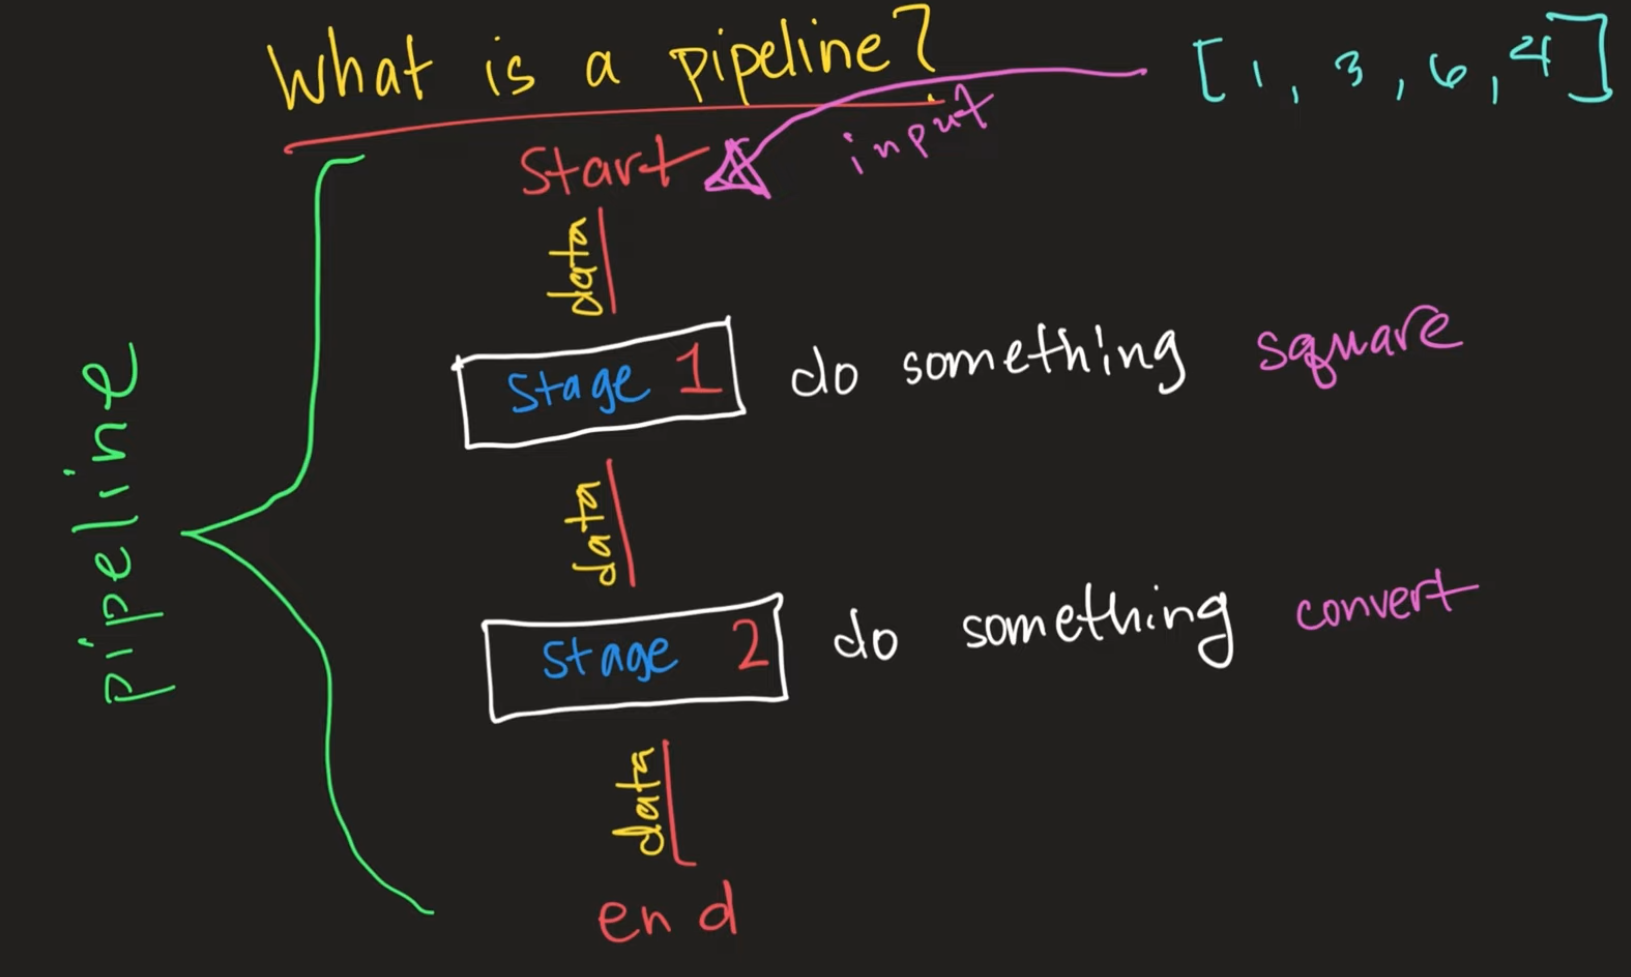 What is a pipeline?
[1, 3, 6, 4]
input
Start
data
Stage 1 do something square
data
Stage 2 do something convert
data
end
pipeline